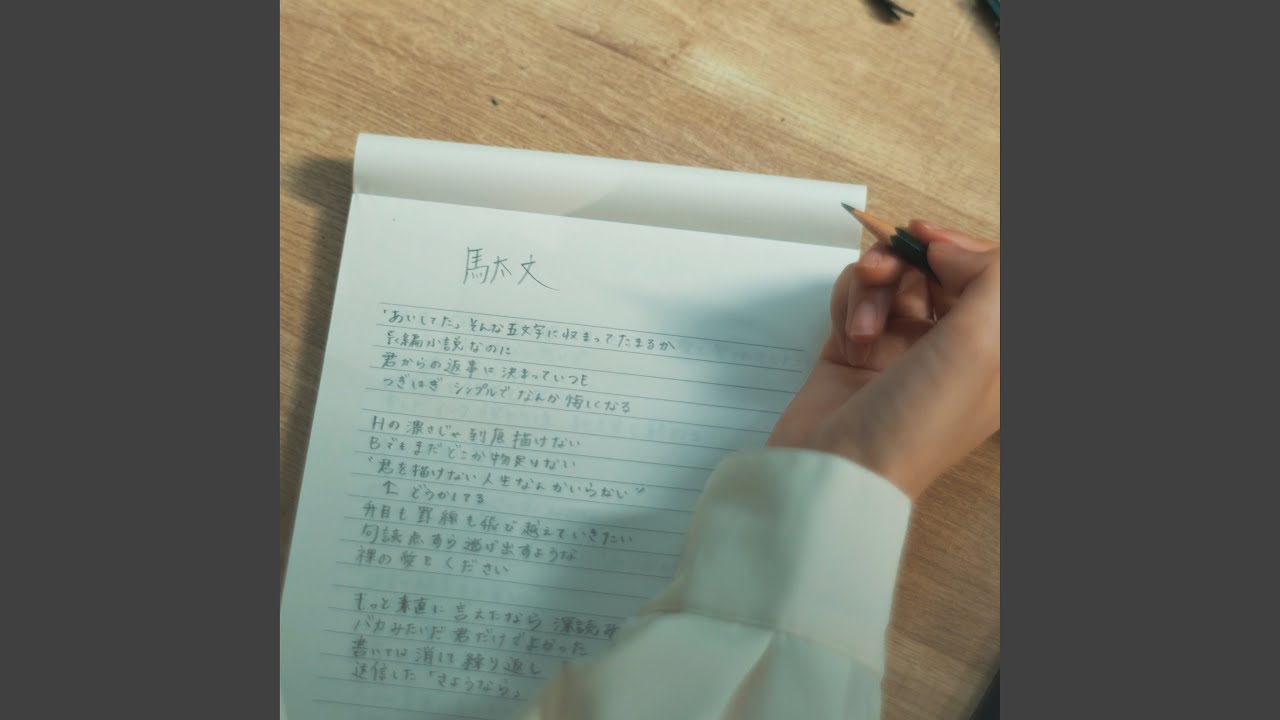 駄文
「あいしてた」そんな五文字に収まってたまるか
長編小説なのに
君からの返事は決まっていつも
つぎはぎ シンプルで なんか悔しくなる
Hの濃さじゃ到底描けない
Bでもまだどこか物足りない
"君を描けない人生なんかいらない"
↑ どうかしてる
升目も罫線も飛び越えていきたい
句読点すら逃げ出すような
裸の愛をください
もっと素直に言えたなら 深読み
バカみたいだ 君だけでよかった
書いては消して繰り返し
送信した「さようなら」